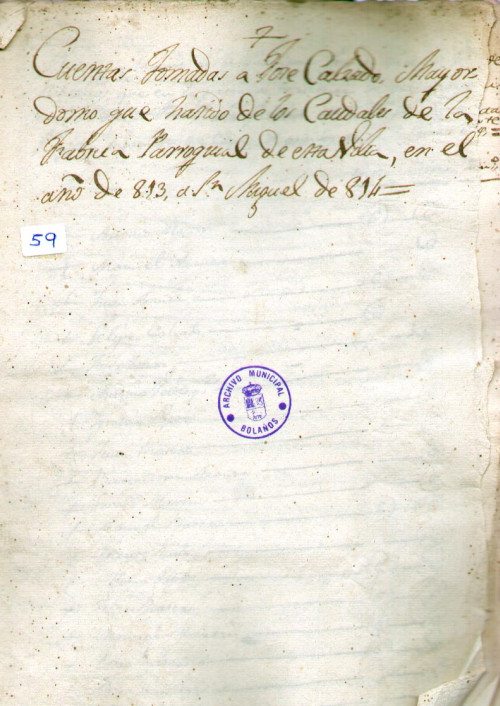 Cuentas tomadas a Jose Calzado, Mayor
domo que ha sido de los Caudales de la
Fabrica Parroquial de esta Villa, en el
año de 813, a Sn Miguel de 814=
59
ARCHIVO MUNICIPAL
BOLAÑOS